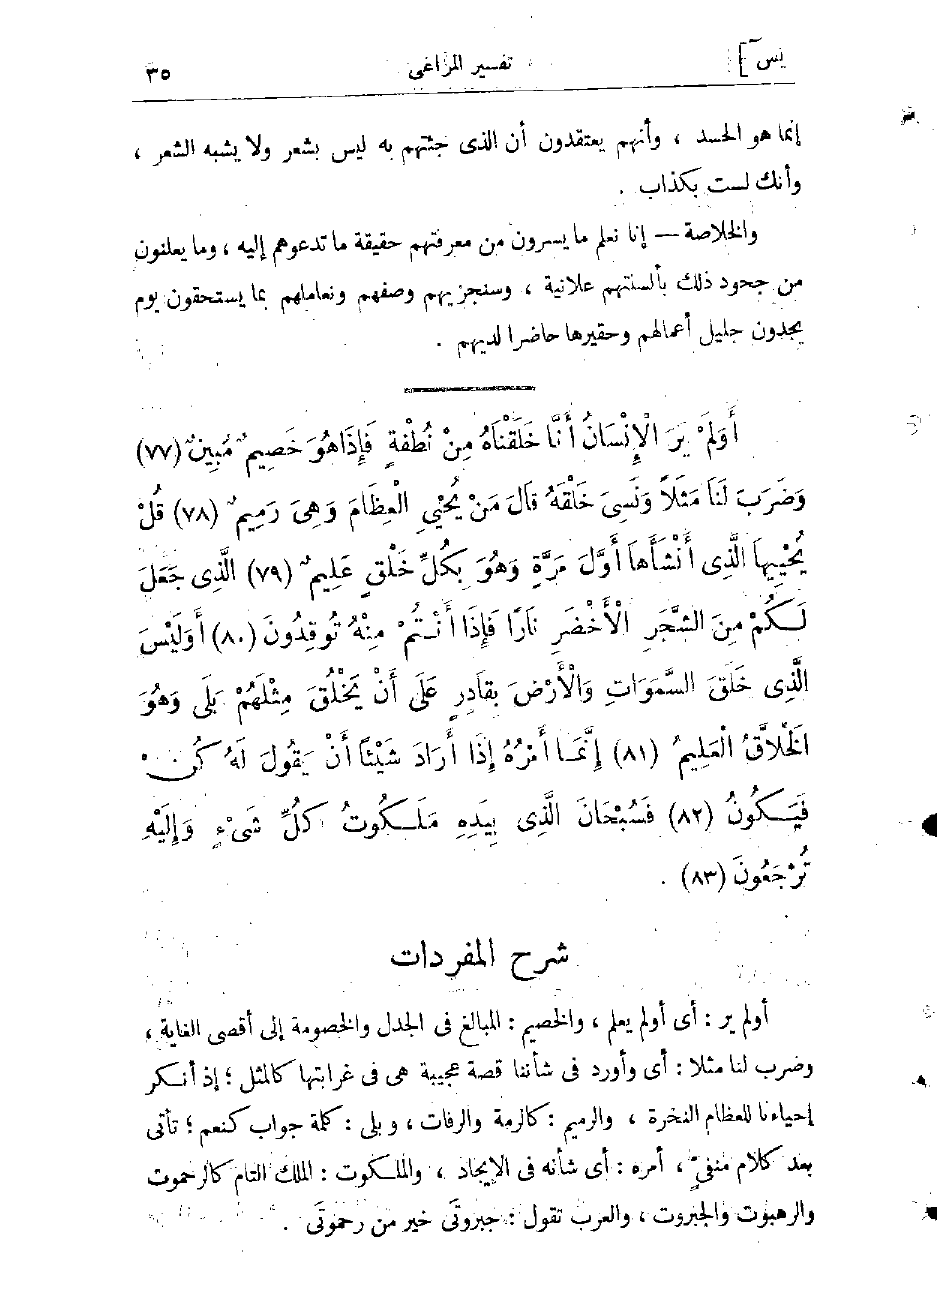 يس] تفسير المراغى ٣٥
إنما هو الحسد ، وأنهم يعتقدون أن الذى جئتهم به ليس بشعر ولا يشبه الشعر ،
وأنك لست بكذاب .
والخلاصة — إنا نعلم ما يسرون من معرفتهم حقيقة ما تدعوهم إليه ، وما يعلنون
من جحود ذلك بألسنتهم علانية ، وسنجزيهم وصفهم ونعاملهم بما يستحقون يوم
يجدون جليل أعمالهم وحقيرها حاضرا لديهم .
أَوَلَمْ يَرَ الْإِنْسَانُ أَنَّا خَلَقْنَاهُ مِنْ نُطْفَةٍ فَإِذَا هُوَ خَصِيمٌ مُبِينٌ (٧٧)
وَضَرَبَ لَنَا مَثَلاً وَنَسِىَ خَلْقَهُ قَالَ مَنْ يُحْيِي الْعِظَامَ وَهِىَ رَمِيمٌ (٧٨) قُلْ
يُحْيِيهَا الَّذِى أَنْشَأَهَا أَوَّلَ مَرَّةٍ وَهُوَ بِكُلِّ خَلْقٍ عَلِيمٌ (٧٩) الَّذِى جَعَلَ
لَكُمْ مِنَ الشَّجَرِ الْأَخْضَرِ نَارًا فَإِذَا أَنْتُمْ مِنْهُ تُوقِدُونَ (٨٠) أَوَلَيْسَ
الَّذِى خَلَقَ السَّمَوَاتِ وَالْأَرْضَ بِقَادِرٍ عَلَى أَنْ يَخْلُقَ مِثْلَهُمْ بَلَى وَهُوَ
الْخَلاَّقُ الْعَلِيمُ (٨١) إِنَّمَا أَمْرُهُ إِذَا أَرَادَ شَيْئاً أَنْ يَقُولَ لَهُ كُنْ
فَيَكُونُ (٨٢) فَسُبْحَانَ الَّذِى بِيَدِهِ مَلَكُوتُ كُلِّ شَىْءٍ وَإِلَيْهِ
تُرْجَعُونَ (٨٣) .
شرح المفردات
أولم ير : أى أولم يعلم ، والخصيم : المبالغ فى الجدل والخصومة إلى أقصى الغاية ،
وضرب لنا مثلا : أى وأورد فى شأننا قصة عجيبة هى فى غرابتها كالمثل ؛ إذ أنكر
إحياءنا للعظام النخرة ، والرميم : كالرمة والرفات ، وبلى : كلمة جواب كنعم ؛ تأتى
بعد كلام منفىّ ، أمره : أى شأنه فى الإيجاد ، والملكوت : الملك التام كالرحموت
والرهبوت والجبروت ، والعرب تقول : جبروتَى خير من رحموتَى .